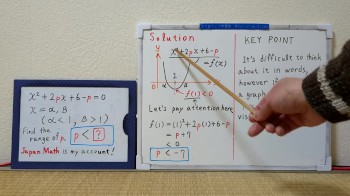 x²+2px+6-p=0
x=α, β
(α<1, β>1)
Find the
range of p.
p < ?
Japan Math is my account!
Solution
y
x²+2px+6-p
=f(x)
0
1
α
β
x
f(1)<0
Let's pay attention here
f(1)=(1)²+2p(1)+6-p
=p+7
<0
p<-7
KEY POINT
It's difficult to think
about it in words,
however i
a graph
vis